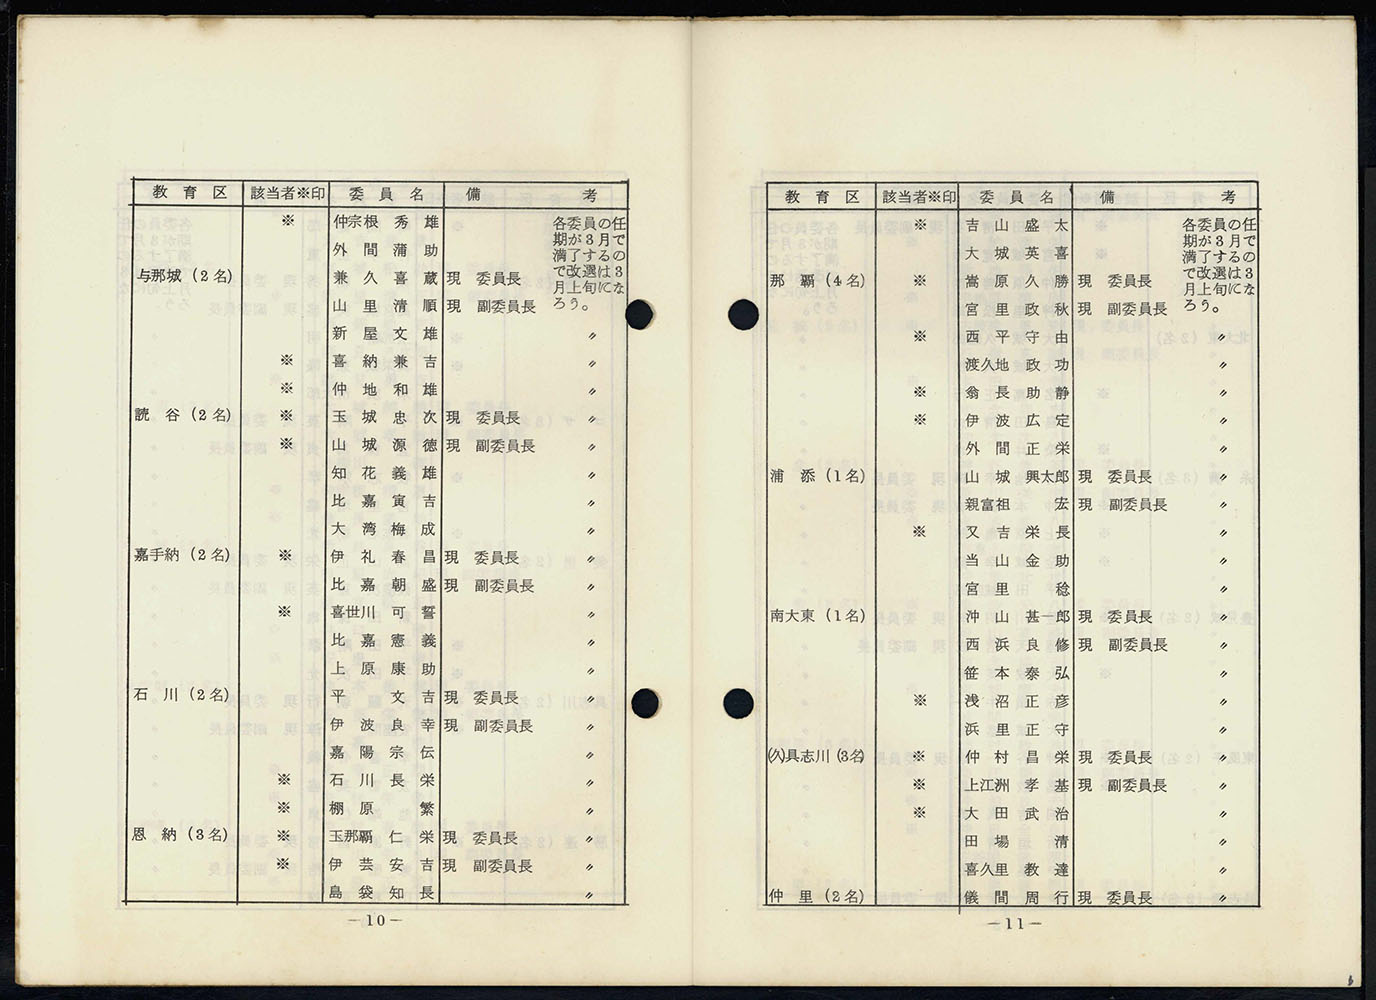 教育区 該当者※印 委員名 備考
※ 仲宗根秀雄
外間蒲助
与那城(2名) 兼久喜蔵 現 委員長
山里清順 現 副委員長
各委員の任
期が3月で
満了するの
で改選は3
月上旬にな
ろう。
新屋文雄 〃
※ 喜納兼吉 〃
※ 仲地和雄 〃
読谷(2名) ※ 玉城忠次 現 委員長 〃
※ 山城源徳 現 副委員長 〃
知花義雄 〃
比嘉寅吉 〃
大湾梅成 〃
嘉手納(2名) ※ 伊礼春昌 現 委員長 〃
比嘉朝盛 現 副委員長 〃
※ 喜世川可誓 〃
比嘉憲義 〃
上原康助 〃
石川(2名) 平文吉 現 委員長 〃
伊波良幸 現 副委員長 〃
嘉陽宗伝 〃
※ 石川長栄 〃
※ 棚原繁 〃
恩納(3名) ※ 玉那覇仁栄 現 委員長 〃
※ 伊芸安吉 現 副委員長 〃
島袋知長 〃
—10—
教育区 該当者※印 委員名 備考
※ 吉山盛太
大城英喜
那覇(4名) ※ 嵩原久勝 現 委員長
宮里政秋 現 副委員長
各委員の任
期が3月で
満了するの
で改選は3
月上旬にな
ろう。
※ 西平守由 〃
渡久地政功 〃
※ 翁長助静 〃
※ 伊波広定 〃
外間正栄 〃
浦添(1名) 山城興太郎 現 委員長 〃
親富祖宏 現 副委員長 〃
※ 又吉栄長 〃
当山金助 〃
宮里稔 〃
南大東(1名) 沖山甚一郎 現 委員長 〃
西浜良修 現 副委員長 〃
笹本泰弘 〃
※ 浅沼正彦 〃
浜里正守 〃
(久)具志川(3名) ※ 仲村昌栄 現 委員長 〃
※ 上江洲孝基 現 副委員長 〃
※ 大田武治 〃
田場清 〃
喜久里教達 〃
仲里(2名) 儀間周行 現 委員長 〃
—11—